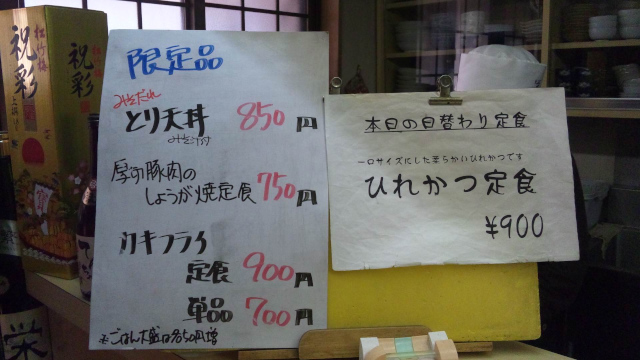 松竹梅
祝彩
限定品
みそだれ
とり天丼 850円
みそ汁付
厚切豚肉の
しょうが焼定食 750円
カキフライ
定食 900円
単品 700円
※ごはん大盛は各50円増
本日の日替わり定食
一口サイズにした柔らかいひれかつです
ひれかつ定食
¥900
栄